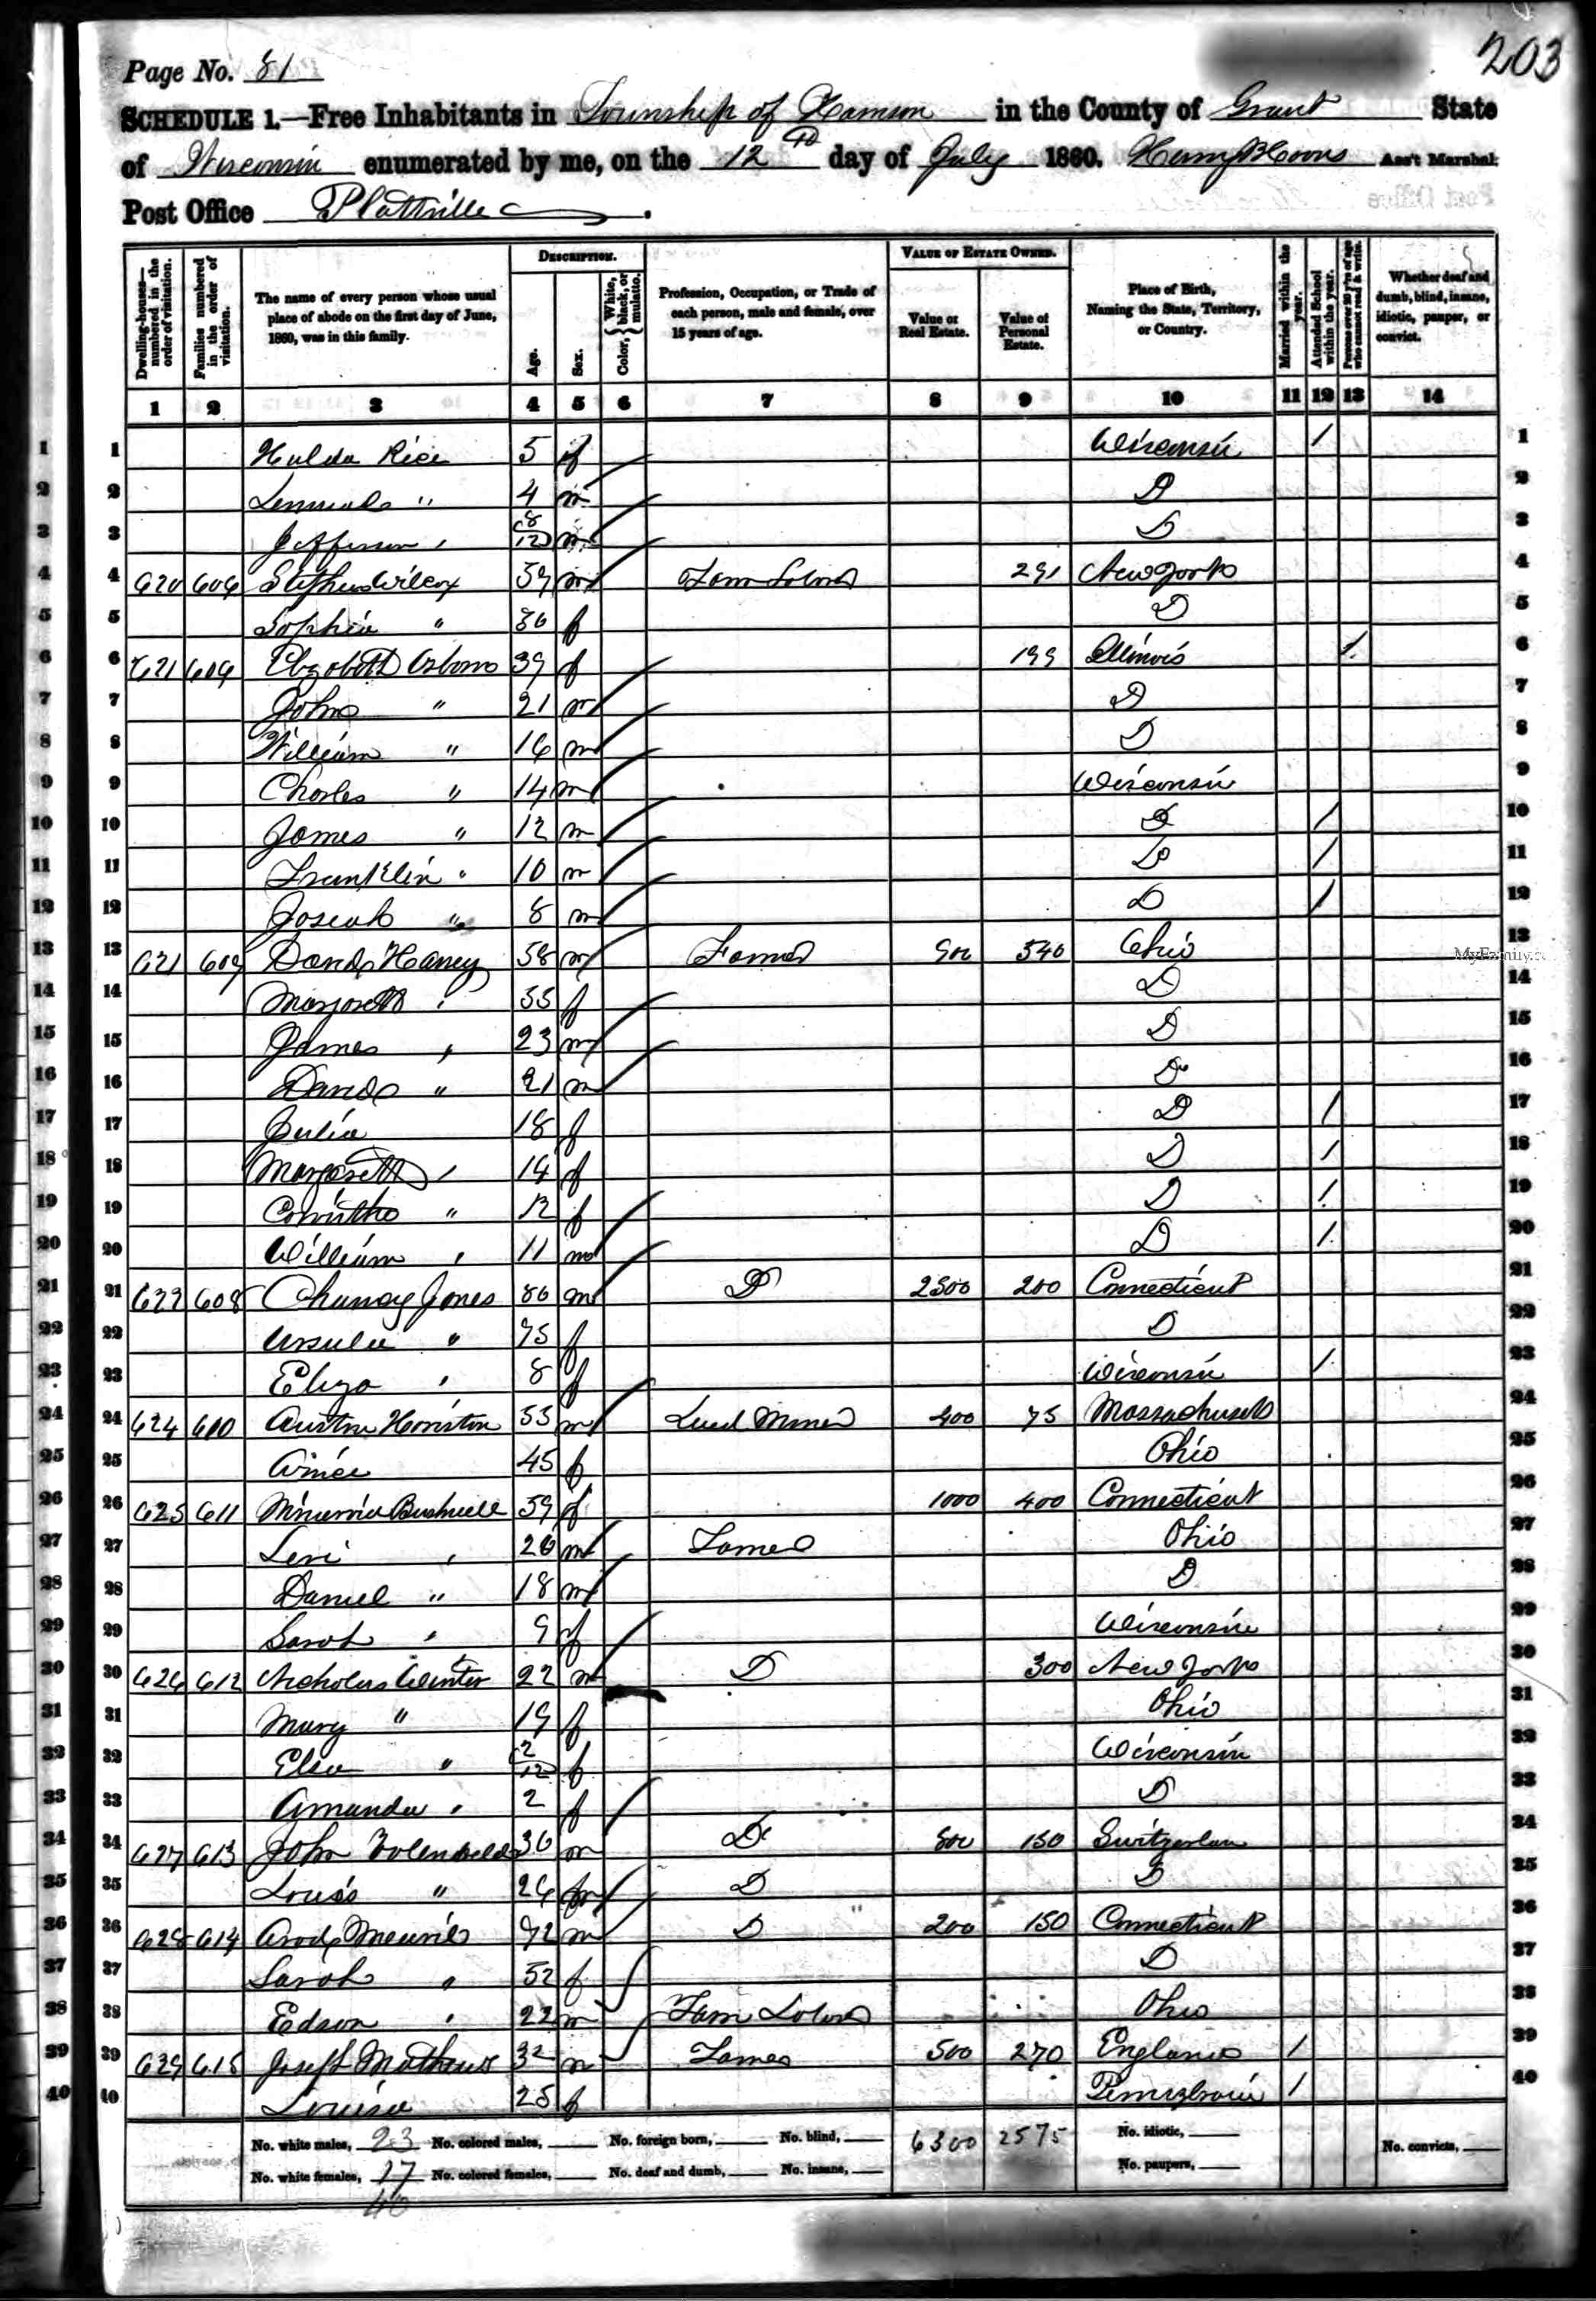 203
Page No. 81
SCHEDULE 1.—Free Inhabitants in Township of Harrison in the County of Grant State
of Wisconsin enumerated by me, on the 12th day of July 1860. Ass't Marshal.
Post Office Plattville
Dwelling-houses—numbered in the order of visitation.
Families numbered in the order of visitation.
The name of every person whose usual place of abode on the first day of June, 1860, was in this family.
DESCRIPTION.
Age.
Sex.
Color, { White, black, or mulatto.
Profession, Occupation, or Trade of each person, male and female, over 15 years of age.
VALUE OF ESTATE OWNED.
Value of Real Estate.
Value of Personal Estate.
Place of Birth, Naming the State, Territory, or Country.
Married within the year.
Attended School within the year.
Persons over 20 y'rs of age who cannot read & write.
Whether deaf and dumb, blind, insane, idiotic, pauper, or convict.
1 2 3 4 5 6 7 8 9 10 11 12 13 14
1 Hulda Rice 5 f Wisconsin / 1
2 " 4 m D 2
3 Jefferson " 8/12 m D 3
4 620 606 Wilcox 59 m Farm 291 New York 4
5 Sophia " f D 5
6 621 Elizabeth Osborn 39 f 199 Illinois / 6
7 John " 21 m D 7
8 William " 16 m D 8
9 Charles " 14 m Wisconsin 9
10 James " 12 m D / 10
11 Franklin " 10 m D / 11
12 Josiah " 8 m D / 12
13 621 David Haney 58 m Farmer 900 540 Ohio 13
14 Margarett " 55 f D 14
15 James " 23 m D 15
16 David " 21 m D 16
17 Julia 18 f D / 17
18 Margarett " 14 f D / 18
19 " 12 f D / 19
20 William " 11 m D / 20
21 608 Chancy Jones 80 m D 2300 200 Connecticut 21
22 Ursula " 75 f D 22
23 Eliza " 8 f Wisconsin / 23
24 624 610 Austin 55 m Lead Miner 400 75 Massachusets 24
25 45 f Ohio 25
26 625 611 Bushnell 59 f 1000 400 Connecticut 26
27 Levi " 20 m Farmer Ohio 27
28 Daniel " 18 m D 28
29 Sarah " 9 f Wisconsin 29
30 626 612 Nicholas Winter 22 m D 300 New York 30
31 Mary " 19 f Ohio 31
32 " 2/12 f Wisconsin 32
33 Amanda " 2 f D 33
34 627 613 John 30 m D 800 150 Switzerlan 34
35 Louis " 26 m D D 35
36 628 614 72 m D 200 150 Connecticut 36
37 Sarah " 52 f D 37
38 Edson " 22 m Farm Ohio 38
39 629 615 Joseph Mathews 32 m Farmer 500 270 England / 39
40 Louisa 25 f / 40
No. white males, 23 No. colored males, No. foreign born, No. blind, 6300 2575 No. idiotic, No. convicts,
No. white females, 17 No. colored females, No. deaf and dumb, No. insane, No. paupers,
40